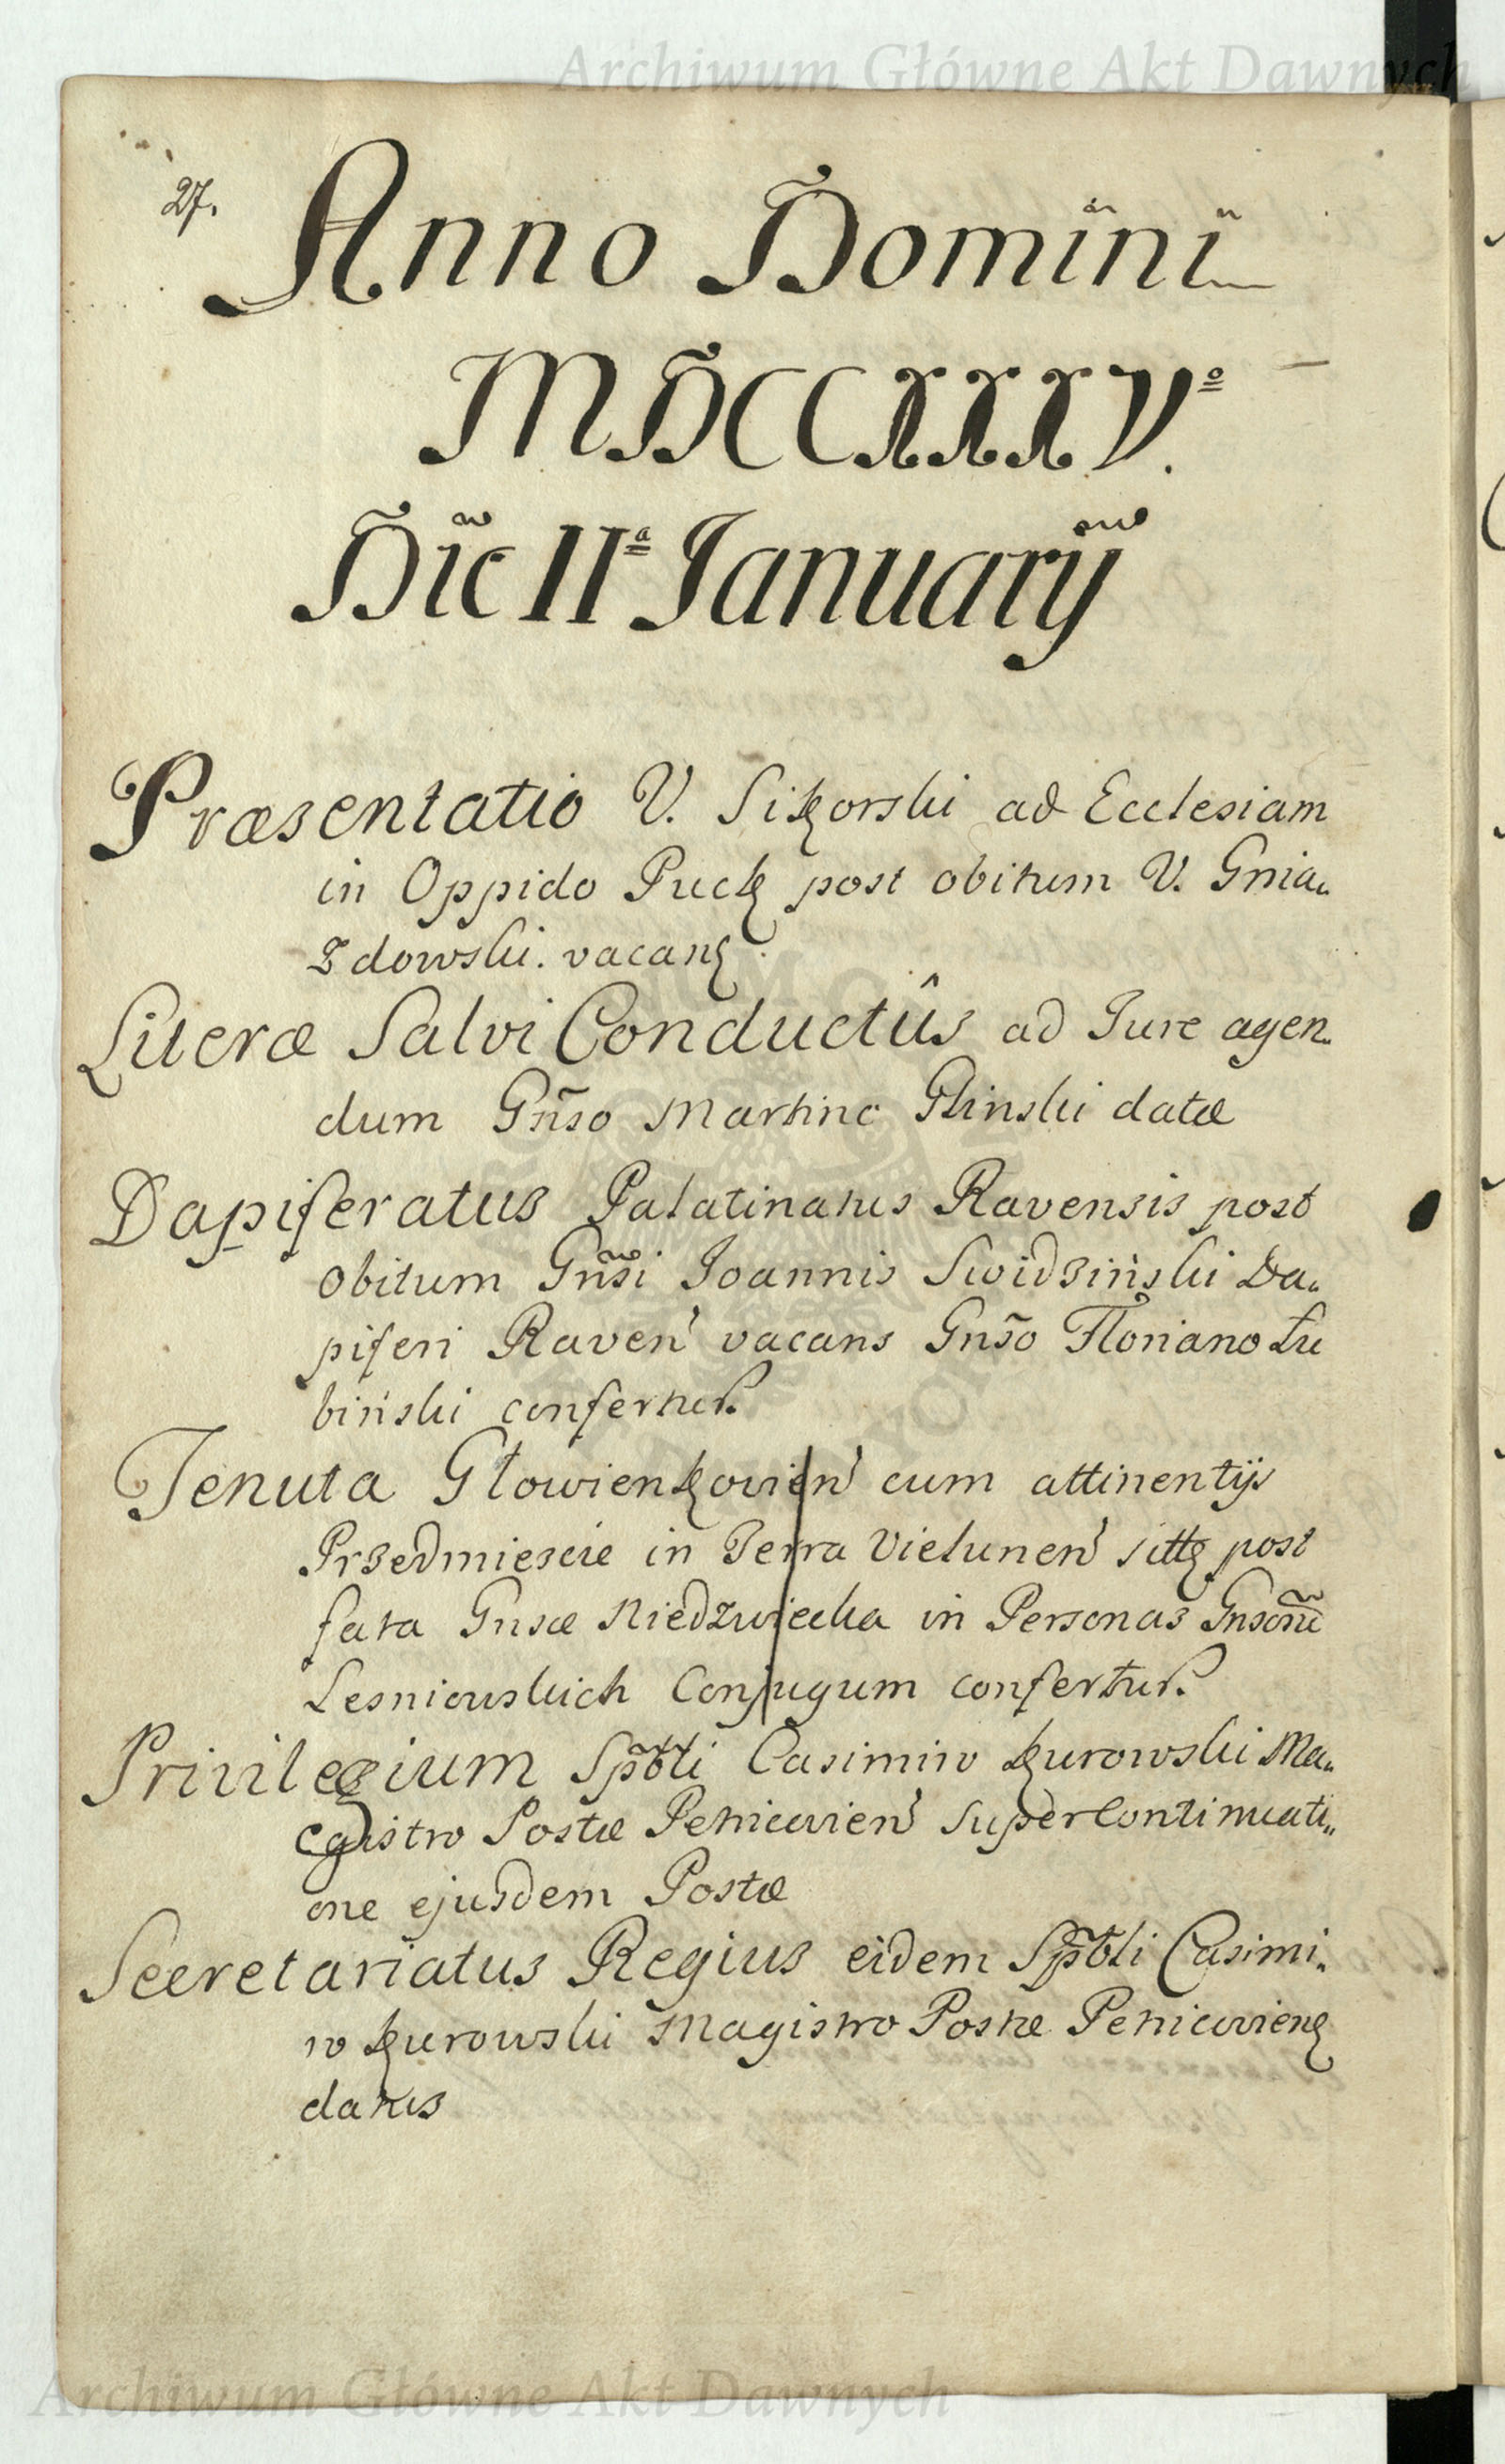 Archiwum Główne Akt Dawnych
27.
Anno Domini
MDCCXXXVº.
Die IIª Januarij
Præsentatio V. Sikorski ad Ecclesiam
in Oppido Puck post obitum V. Gnia„
zdowski. vacanꝫ
Literæ Salvi Conductûs ad Jure agen„
dum Gñso Martino Glinski datæ
Dapiferatus Palatinatus Ravensis post
obitum Gñsi Joannis Swidziński Da„
piferi Raven̉ vacans Gns̃o Floriano Łu
biński confertur.
Tenuta Głowienkovien̉ cum attinentijs
Przedmiescie in Terra Vielunen̉ sittꝫ post
fata Gnsæ Niedzwiecka in Personas Gnsor̃u
Lesniowskich Conjugum confertur.
Privilegium Sp̃bli Casimiro Kurowski Ma„
gistro Postæ Petricovien̉ super Continuati„
one ejusdem Postæ
Secretariatus Regius eidem Sp̃bli Casimi„
ro Kurowski Magistro Postæ Petricovienꝫ
datus
Archiwum Główne Akt Dawnych